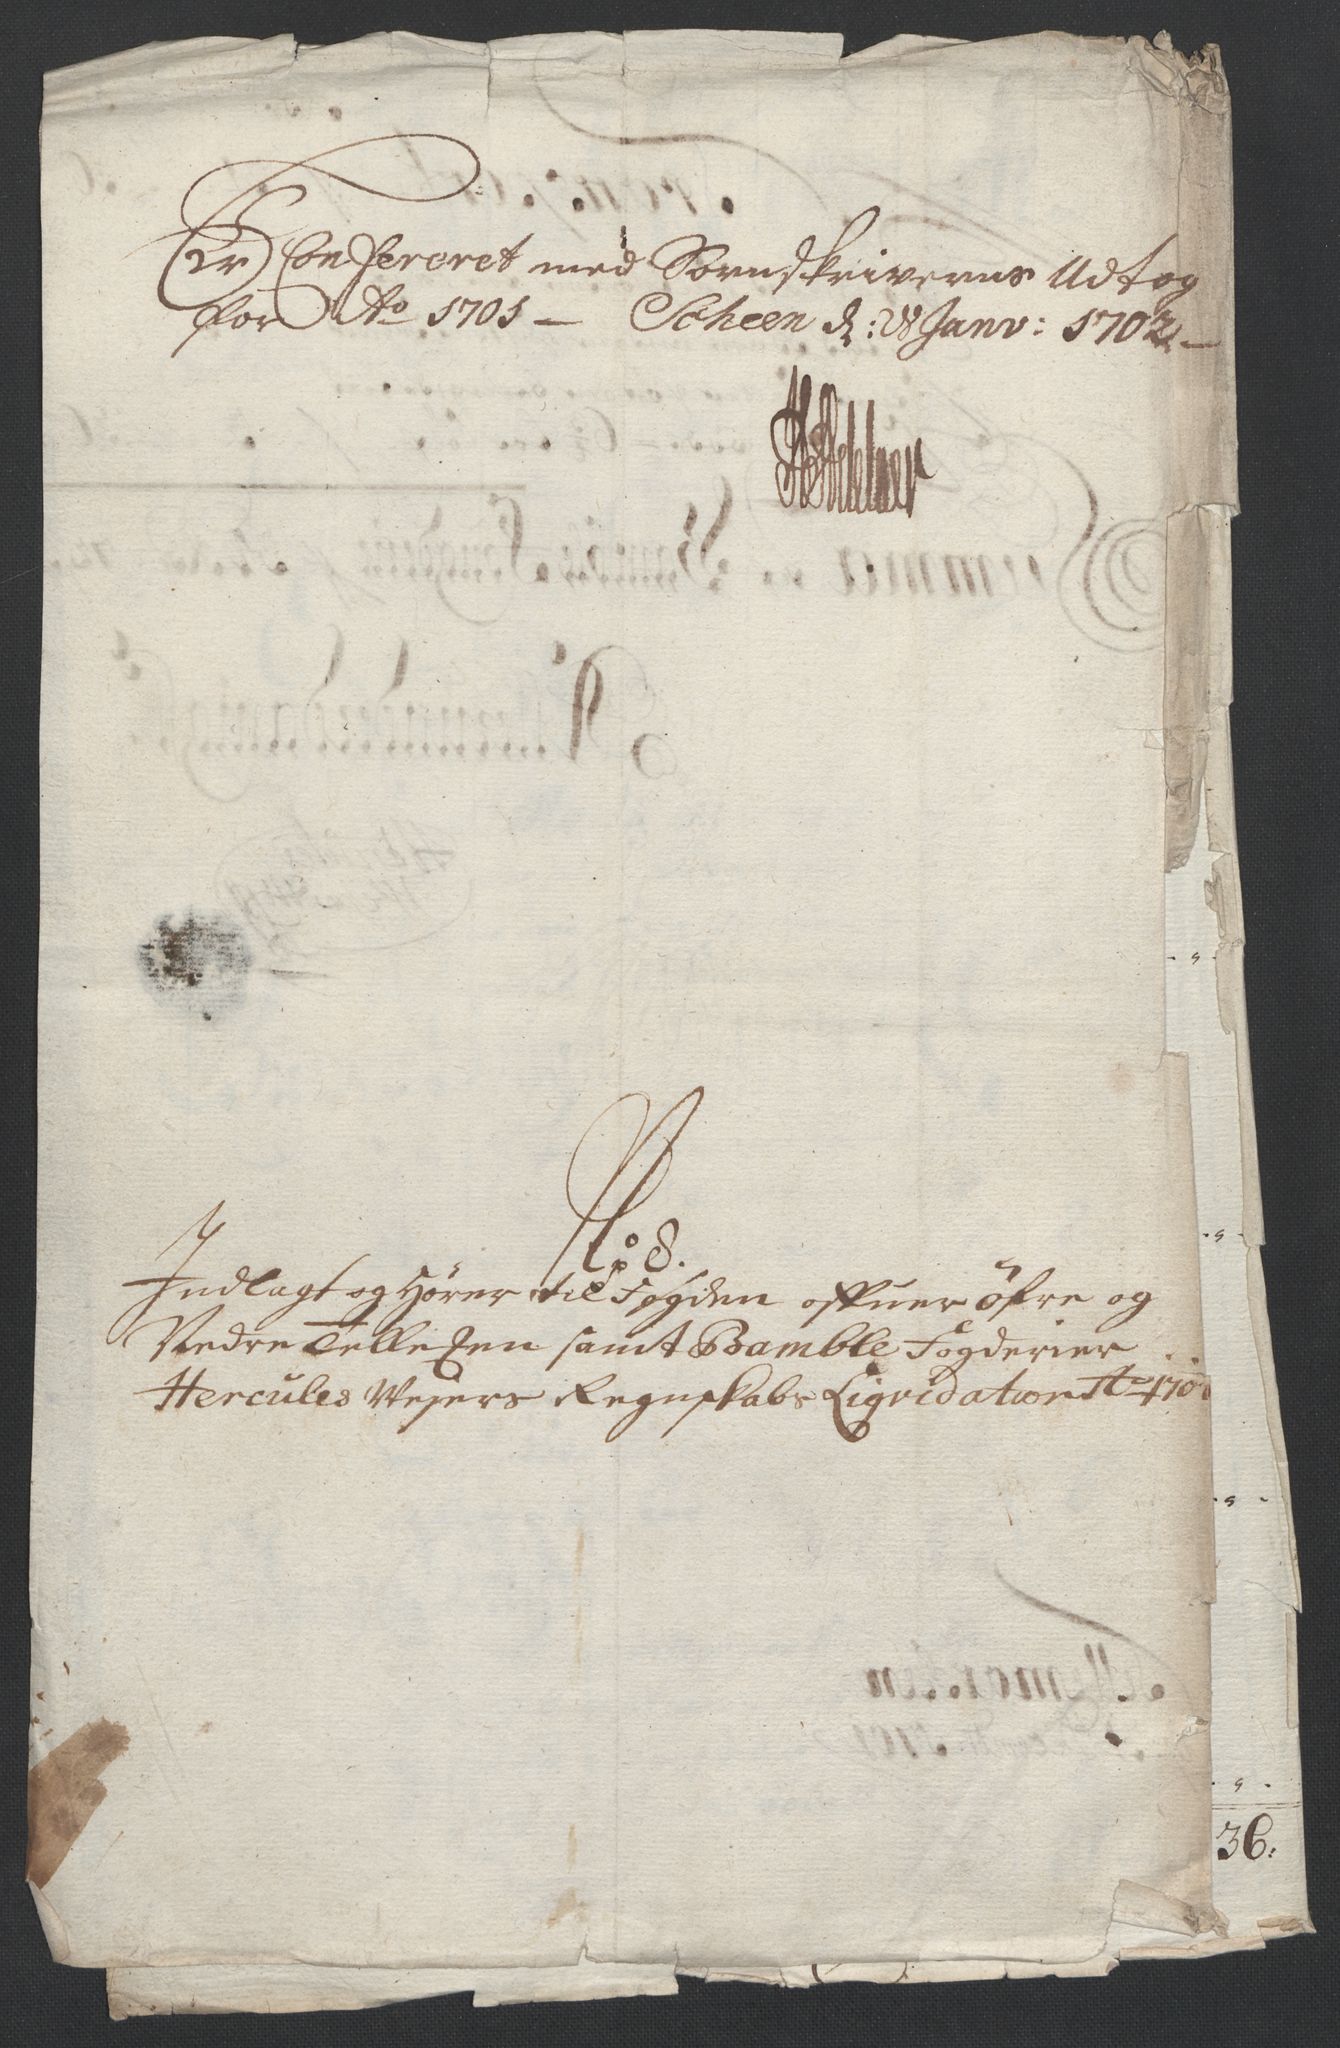 Er Confereret med Sorenskriverens Udtog
for Ao 1701 — Scheen d: 28 Janv: 1702 —
HAdelaer
No 8.
Indlagt og Hører til Fogden offuer öfre og
Nedre Tellemarken samt Bamble Fogderier
Hercules Wejers Regnskabs Liqvidation Ao 170
36.